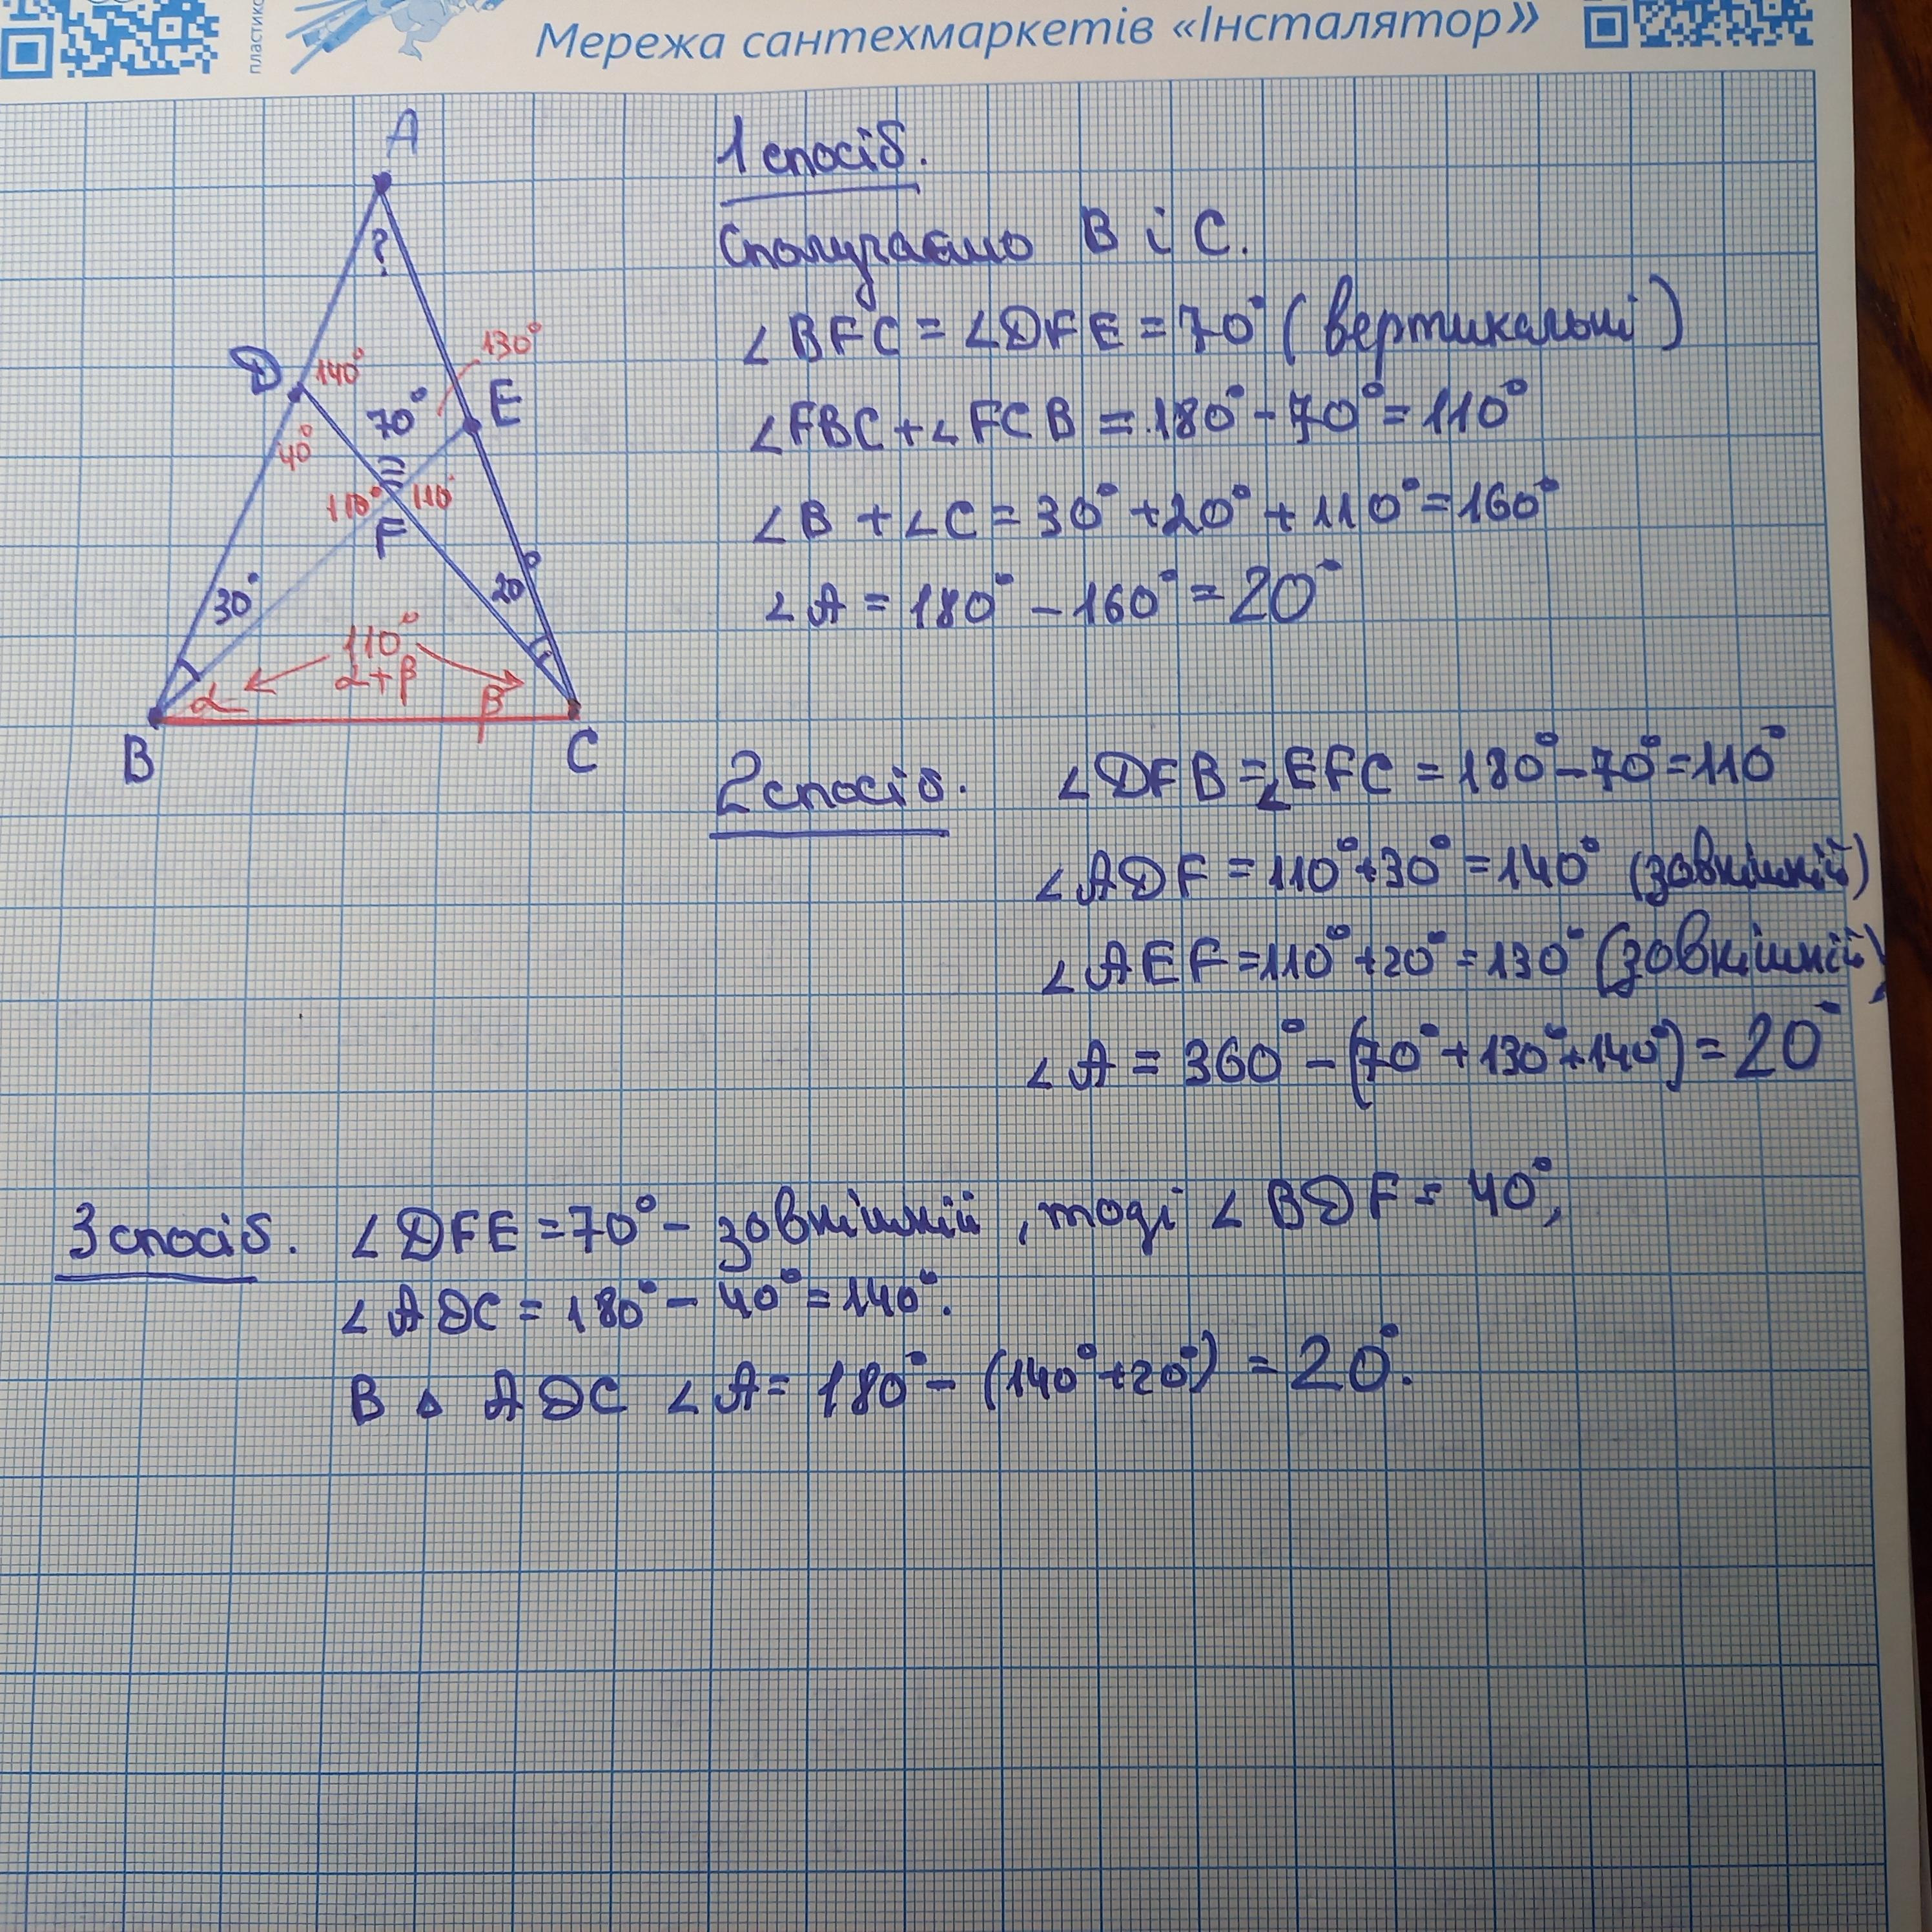 пластико
Мережа сантехмаркетів «Інсталятор»
A
?
D
140°
130°
70°
E
40°
110° 110°
F
30°
20°
110°
α+β
α
β
B
C
1 спосіб.
Сполучаємо B і C.
∠BFC = ∠DFE = 70° (вертикальні)
∠FBC + ∠FCB = 180° - 70° = 110°
∠B + ∠C = 30° + 20° + 110° = 160°
∠A = 180° - 160° = 20°
2 спосіб. ∠DFB = ∠EFC = 180° - 70° = 110°
∠ADF = 110° + 30° = 140° (зовнішній)
∠AEF = 110° + 20° = 130° (зовнішній)
∠A = 360° - (70° + 130° + 140°) = 20°
3 спосіб. ∠DFE = 70° - зовнішній, тоді ∠BDF = 40°,
∠ADC = 180° - 40° = 140°.
В △ ADC ∠A = 180° - (140° + 20°) = 20°.